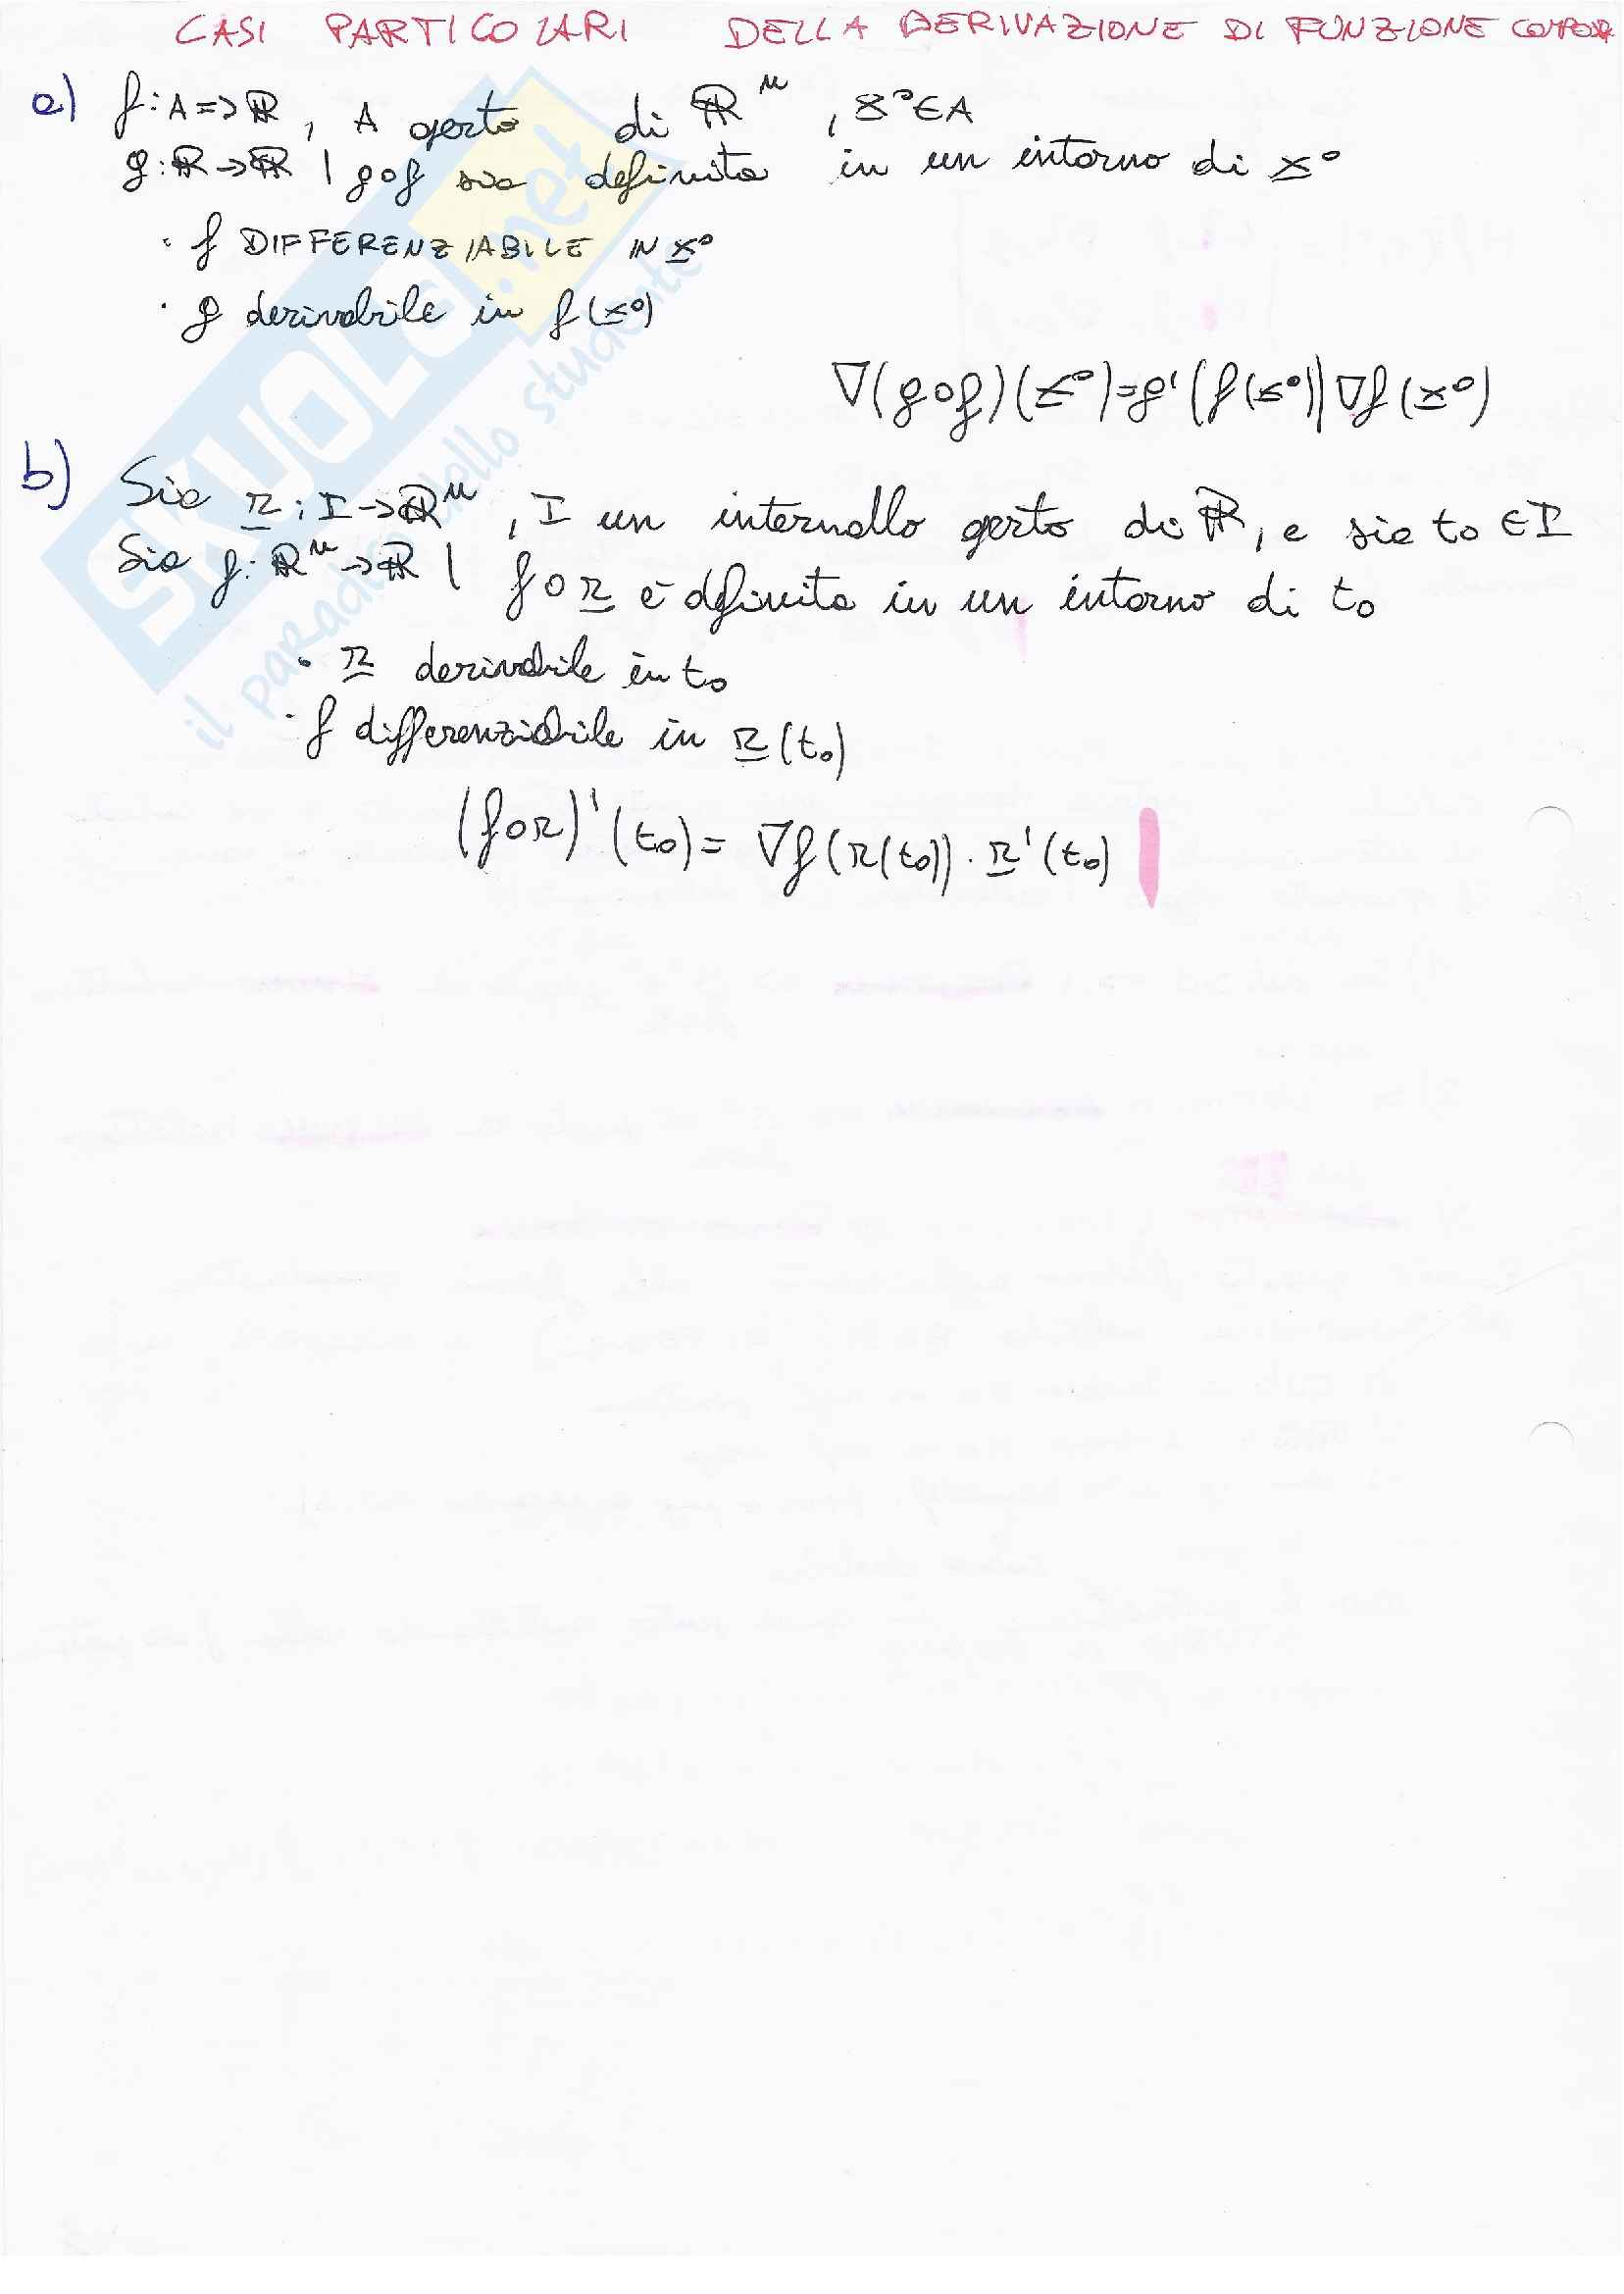 CASI PARTICOLARI DELLA DERIVAZIONE DI FUNZIONE
a) f: A => ℝ, A aperto di ℝⁿ, x° ∈ A
g: ℝ → ℝ | g∘f sia definita in un intorno di x°
· f DIFFERENZIABILE IN x°
· g derivabile in f(x°)
∇(g∘f)(x°) = g'(f(x°)) ∇f(x°)
b) Sia r: I → ℝⁿ, I un intervallo aperto di ℝ, e sia t₀ ∈ I
Sia f: ℝⁿ → ℝ | f∘r è definita in un intorno di t₀
· r derivabile in t₀
· f differenziabile in r(t₀)
(f∘r)'(t₀) = ∇f(r(t₀)) · r'(t₀)
SKUOLA.net
il paradiso dello studente